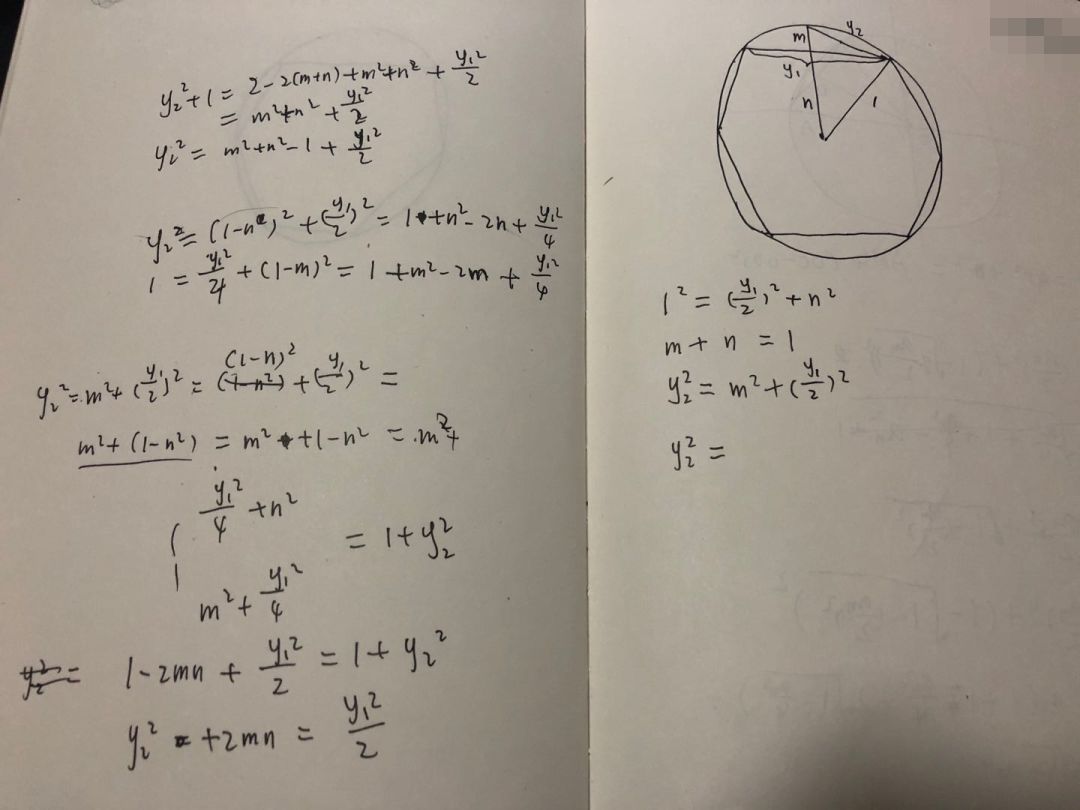 y₂²+1 = 2-2(m+n)+m²+n²+y₁²/2
= m²+n²+y₁²/2
y₂² = m²+n²-1+y₁²/2
y₂² = (1-n)²+(y₁/2)² = 1+n²-2n+y₁²/4
1 = y₁²/4+(1-m)² = 1+m²-2m+y₁²/4
(1-n)²
y₂² = m²+(y₁/2)² = (1-n²)+(y₁/2)² =
m²+(1-n²) = m²+1-n² = m²+
y₁²/4+n²
= 1+y₂²
m²+y₁²/4
y₂² = 1-2mn+y₁²/2 = 1+y₂²
y₂²+2mn = y₁²/2
m
y₂
y₁
n
1
1² = (y₁/2)²+n²
m+n = 1
y₂² = m²+(y₁/2)²
y₂² =